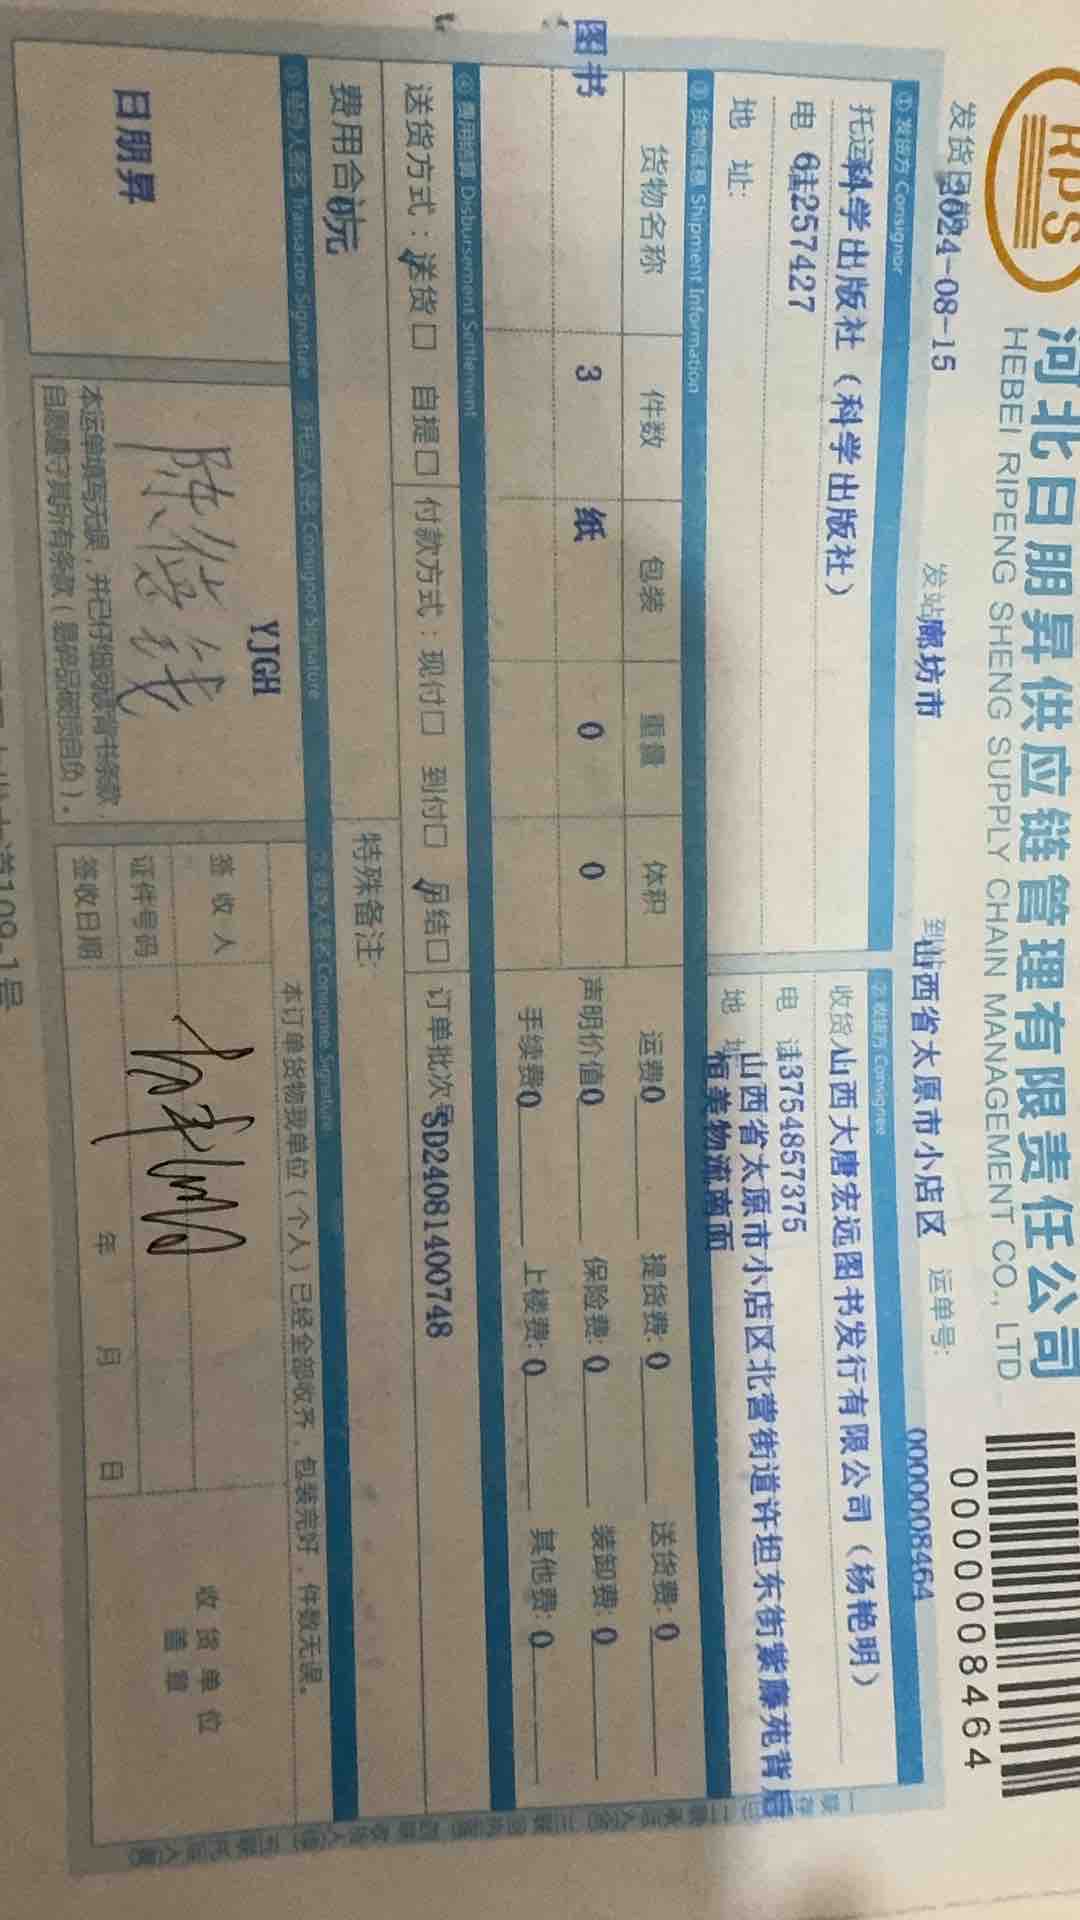 RPS
河北日朋昇供应链管理有限责任公司
HEBEI RIPENG SHENG SUPPLY CHAIN MANAGEMENT CO., LTD
0000008464
发货日期 2024-08-15 发站 廊坊市 到站 山西省太原市小店区 运单号: 0000008464
① 发货方 Consignor
托运 科学出版社（科学出版社）
电话 6 257427
地 址:
② 收货方 Consignee
收货人 山西大唐宏远图书发行有限公司（杨艳明）
电 话 13754857375
地 址 山西省太原市小店区北营街道许坦东街紫藤苑背后
恒美物流南面
③ 货物信息 Shipment Information
货物名称 件数 包装 重量 体积
图书 3 纸 0 0
运费 0 提货费: 0 送货费: 0
声明价值 0 保险费: 0 装卸费: 0
手续费 0 上楼费: 0 其他费: 0
④ 费用结算 Disbursement Settlement
送货方式: 送货□ 自提□ 付款方式: 现付□ 到付□ 月结□ 订单批次号 SD24081400748
费用合计 0元 特殊备注:
⑤ 经办人签名 Transactor Signature ⑥ 托运人签名 Consignor Signature
收货人签名 Consignee Signature
日朋昇
YJGH
本运单填写无误，并已仔细阅读背书条款，
自愿遵守其所有条款（易碎品破损自负）。
本订单货物我单位（个人）已经全部收齐，包装完好，件数无误。
签 收 人
证件号码
签收日期: 年 月 日
收货单位
盖章
109-1号